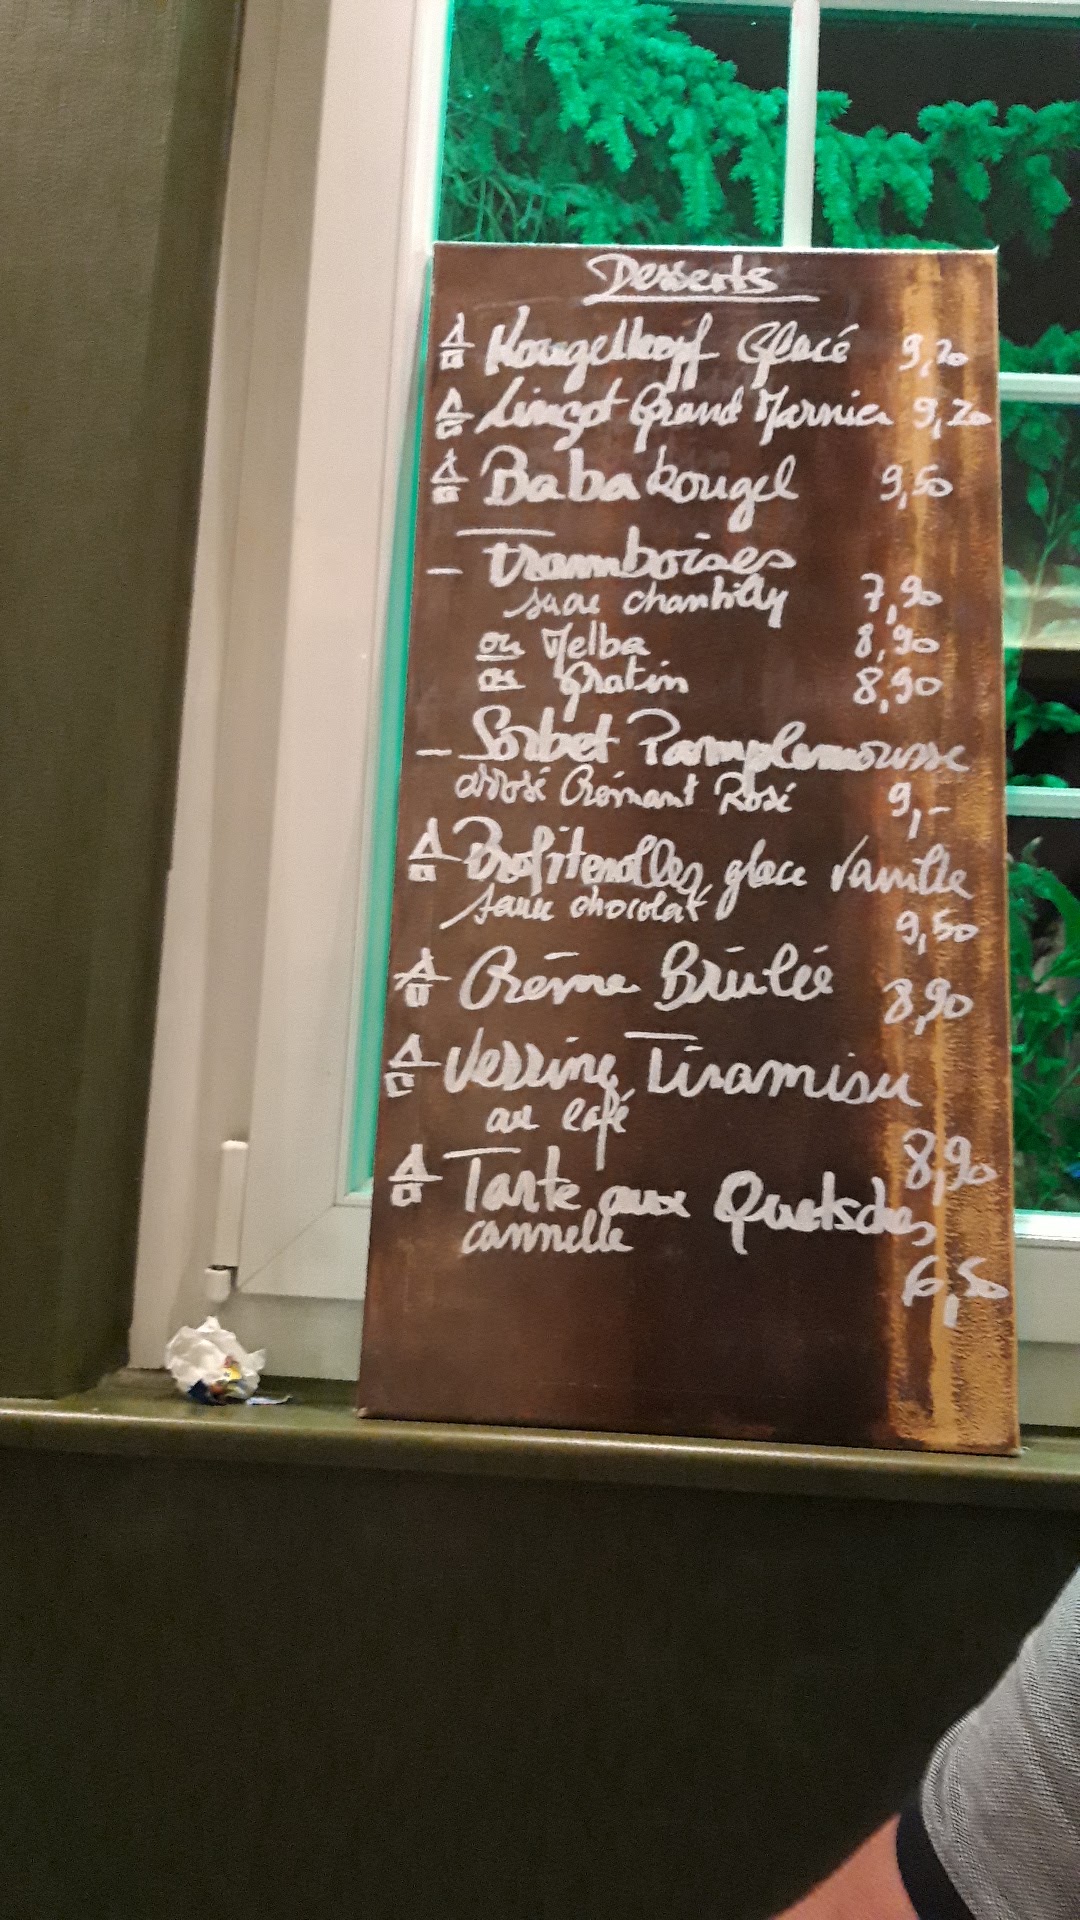 Desserts
Kougelhopf Glacé 9,20
Lingot Grand Marnier 9,20
Baba kougel 9,50
- Framboises
sucre chantilly 7,90
ou Melba 8,90
ou Gratin 8,90
- Sorbet Pamplemousse
arrosé Crémant Rosé 9,-
Profiterolles, glace Vanille
sauce chocolat 9,50
Crème Brûlée 8,90
Verrine Tiramisu
au café
8,90
Tarte aux Quetsches
cannelle
6,50